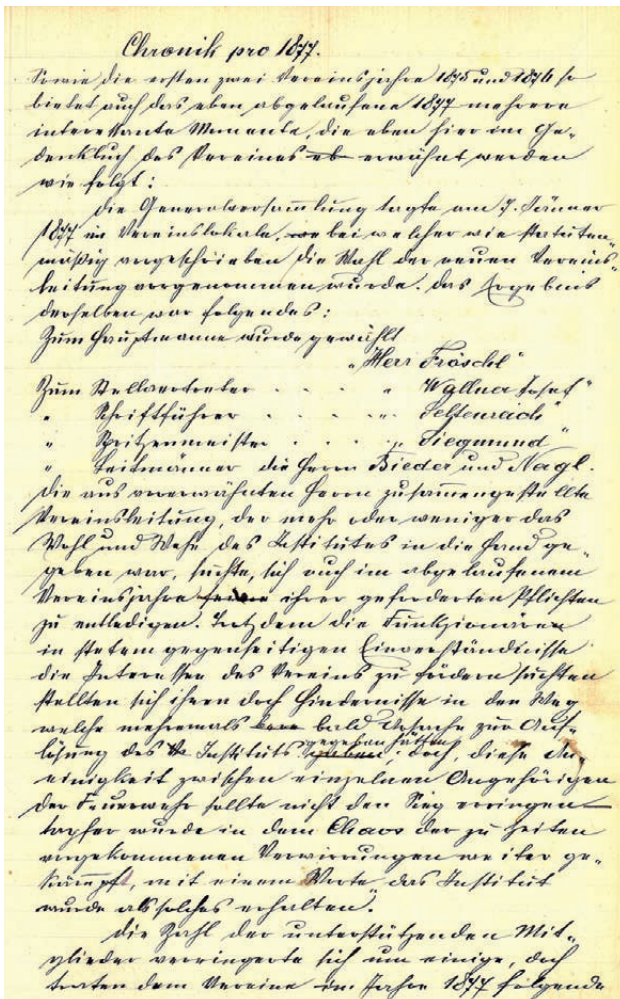 Chronik pro 1877.
Sowie die ersten zwei Vereinsjahre 1875 und 1876 so
bietet auch das eben abgelaufene 1877 mehrere
interessante Momente, die eben hier im Ge-
denkbuch des Vereines eb erwähnt werden
wie folgt:
Die Generalversammlung tagte am 7. Jänner
1877 im Vereinslokale, wo bei welcher wie statuten-
mäßig vorgeschrieben die Wahl der neuen Vereins-
leitung vorgenommen wurde. Das Ergebnis
derselben war folgendes:
Zum Hauptmanne wurde gewählt
"Herr Fröschl"
Zum Stellvertreter . . . . " Wallner Josef"
" Schriftführer . . . . " Seltenreich"
" Spritzenmeister . . . . " Siegmund"
" Leitmänner die Herrn Bieder und Nagl.
Die aus vorerwähnten Herrn zusammengestellte
Vereinsleitung, der mehr oder weniger das
Wohl und Wehe des Institutes in die Hand ge-
geben war, suchte, sich auch im abgelaufenem
Vereinsjahre ihrer geforderten Pflichten
zu entledigen. Trotzdem die Funkzionäre
in stetem gegenseitigen Einverständnisse
die Interessen des Vereins zu fördern suchten
stellten sich ihnen doch Hindernisse in den Weg
welche mehremals bald Ursache zur Auf-
lösung des Ve Instituts gegeben hätten; doch, diese Un-
einigkeit zwischen einzelnen Angehörigen
der Feuerwehr sollte nicht den Sieg erringen
tapfer wurde in dem Chaos der zu Zeiten
vorgekommenen Verwirrungen weiter ge-
kämpft, mit einem Worte "das Institut
wurde als solches erhalten".
Die Zahl der unterstützenden Mit-
glieder verringerte sich um einige, doch
traten dem Vereine im Jahre 1877 folgende